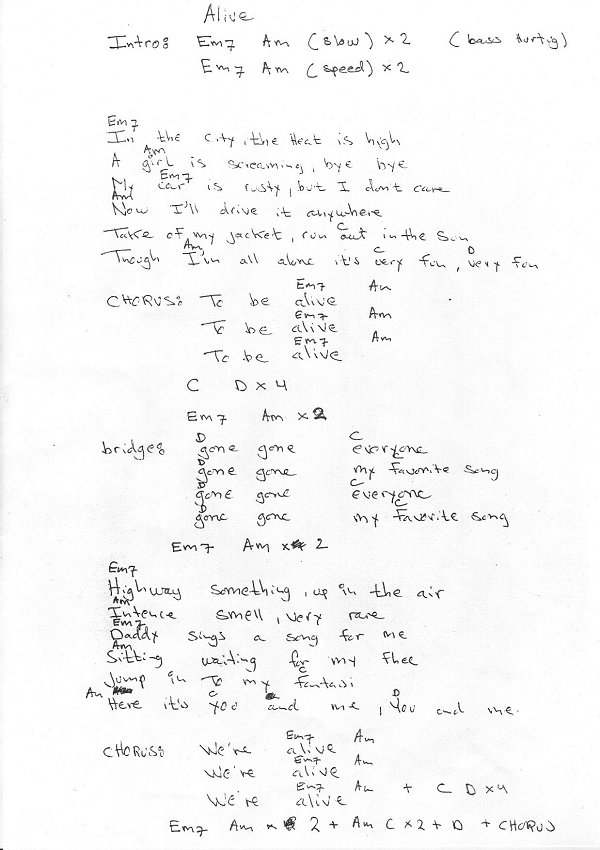 Alive
Intro: Em7 Am (slow) x2 (bass Hurtig)
Em7 Am (speed) x2
Em7
In the city, the Heat is high
Am
A girl is screaming, bye bye
Em7
My car is rusty, but I don't care
Am
Now I'll drive it anywhere
C
Take of my jacket, run out in the sun
Am C D
Though I'm all alone it's very fun, very fun
Em7 Am
CHORUS: To be alive
Em7 Am
To be alive
Em7 Am
To be alive
C D x 4
Em7 Am x2
D C
bridge: gone gone everyone
D C
gone gone my favorite song
D C
gone gone everyone
D C
gone gone my favorite song
Em7 Am x 2
Em7
Highway something, up in the air
Am
Intence smell, very rare
Em7
Daddy sings a song for me
Am
Sitting waiting for my
C
Jump in to my fantasi
Am C D
Here it's you and me, you and me.
Em7 Am
CHORUS: We're alive
Em7 Am
We're alive
Em7 Am + C D x4
We're alive
Em7 Am x 2 + Am C x2 + D + CHORUS